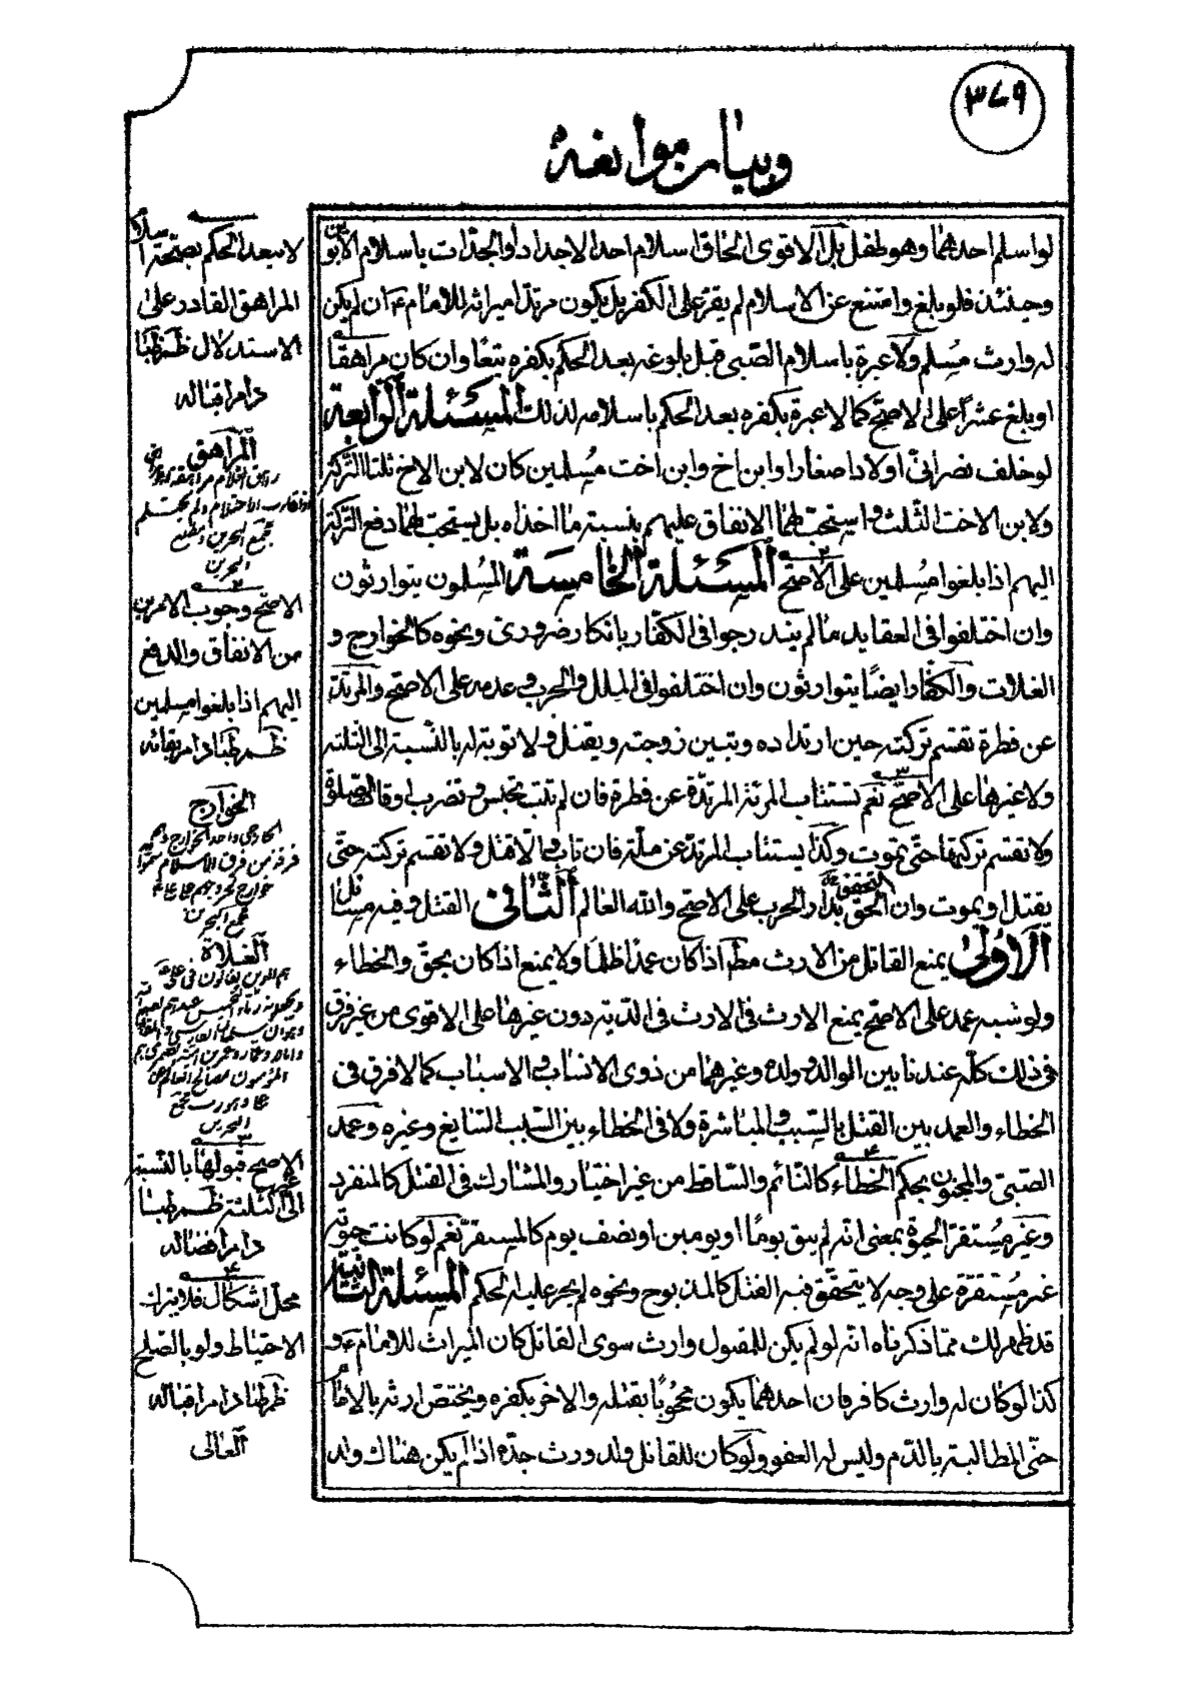 ٣٧٩
وبيان موانعه
لو اسلم احدهما وهو طفل بل الاقوى الحاق اسلام احد الاجداد او الجدّات باسلام الأبوين
وحينئذ فلو بلغ وامتنع عن الاسلام لم يقرّ على الكفر بل يكون مرتدّا ميراثه للامام ع ان لم يكن
له وارث مسلم ولا عبرة باسلام الصّبى قبل بلوغه بعد الحكم بكفره تبعًا وان كان مراهقا
او بلغ عشراً على الاصحّ كما لا عبرة بكفره بعد الحكم باسلامه لذلك المسئلة الرّابعة
لو خلف نصرانىّ اولادا صغارا وابن اخ وابن اخت مُسلمين كان لابن الاخ ثلثا التّركة
ولابن الاخت الثّلث واستحبّ لهما الانفاق عليهم بنسبة ما اخذاه بل يستحبّ لهما دفع التّركة
اليهم اذا بلغوا مُسلمين على الاصحّ المسئلة الخامسة المُسلمون يتوارثون
وان اختلفوا فى العقايد ما لم يندرجوا فى الكفّار بانكار ضرورىّ ونحوه كالخوارج و
الغلات والكفّار ايضًا يتوارثون وان اختلفوا فى الملل والحرب وعدمه على الاصحّ والمرتدّ
عن فطرة تقسم تركته حين ارتداده وتبين زوجته ويقتل ولا توبة له بالنّسبة الى الثلثة
ولا غيرها على الاصحّ نعم تستتاب المرئة المرتدّة عن فطرة فان لم تتب تحبس وتضرب اوقات الصلوة
ولا تقسم تركتها حتّى تموت وكذا يستتاب المرتدّ عن ملّة فان تاب والّا قتل ولا تقسم تركته حتّى
يقتل او يموت وان التحق بدار الحرب على الاصحّ والله العالم الثّانى القتل وفيه مسائل
الاُولىٰ يمنع القاتل من الارث مطم اذا كان عمدًا ظلما ولا يمنع اذا كان بحقّ والخطاء
ولو شبيه عمد على الاصحّ يمنع الارث فى الارث فى الدّية دون غيرها على الاقوى من غير فرق
فى ذلك كلّه عندنا بين الوالد وولده وغيرهما من ذوى الانساب والاسباب كما لا فرق فى
الخطاء والعمد بين القتل بالسّبب والمباشرة ولا فى الخطاء بين السّبب السّايغ وغيره وعمد
الصّبىّ والمجنون بحكم الخطاء كالنّائم والسّاقط من غير اختيار والمشارك فى القتل كالمنفرد
وغير مُستقرّ الحيوة بمعنى انّه لم يبق يومًا او يومين او نصف يوم كالمستقرّ نعم لو كانت حيوته
غير مُستقرّة على وجه لا يتحقّق فيه القتل كالمذبوح ونحوه لم يجر عليه الحكم المسئلة الثّانية
قد ظهر لك ممّا ذكرناه انّه لو لم يكن للمقتول وارث سوى القاتل كان الميراث للامام ع و
كذا لو كان له وارث كافر فان احدهما يكون محجوبًا بقتله والاخر بكفره ويختصّ ارثه بالامام
حتّى المطالبة بالدّم وليس له العفو ولو كان للقاتل ولد ورث جدّه اذا لم يكن هناك ولد
لا يبعد الحكم بصحّة اسلام
المراهق القادر على
الاستدلال ظم طبا
دام اقباله
المراهق
اذا قارب الاحتلام ولم يحتلم
مجمع البحرين
الاصحّ وجوب الامرين
من الانفاق والدفع
اليهم اذا بلغوا مسلمين
ظم طبا دام بقائه
الخوارج
الخارجى واحد الخوارج وهم
فرقة من فرق الاسلام سمّوا
خوارج لخروجهم على على ع
مجمع البحرين
الغلاة
هم الذين يغالون فى على ع
البحرين
الاصح قبولها بالنّسبة
الى الثلثة ظم طبا
دام افضاله
محلّ اشكال فلا يترك
الاحتياط ولو بالصّلح
ظم طبا دام اقباله
العالى